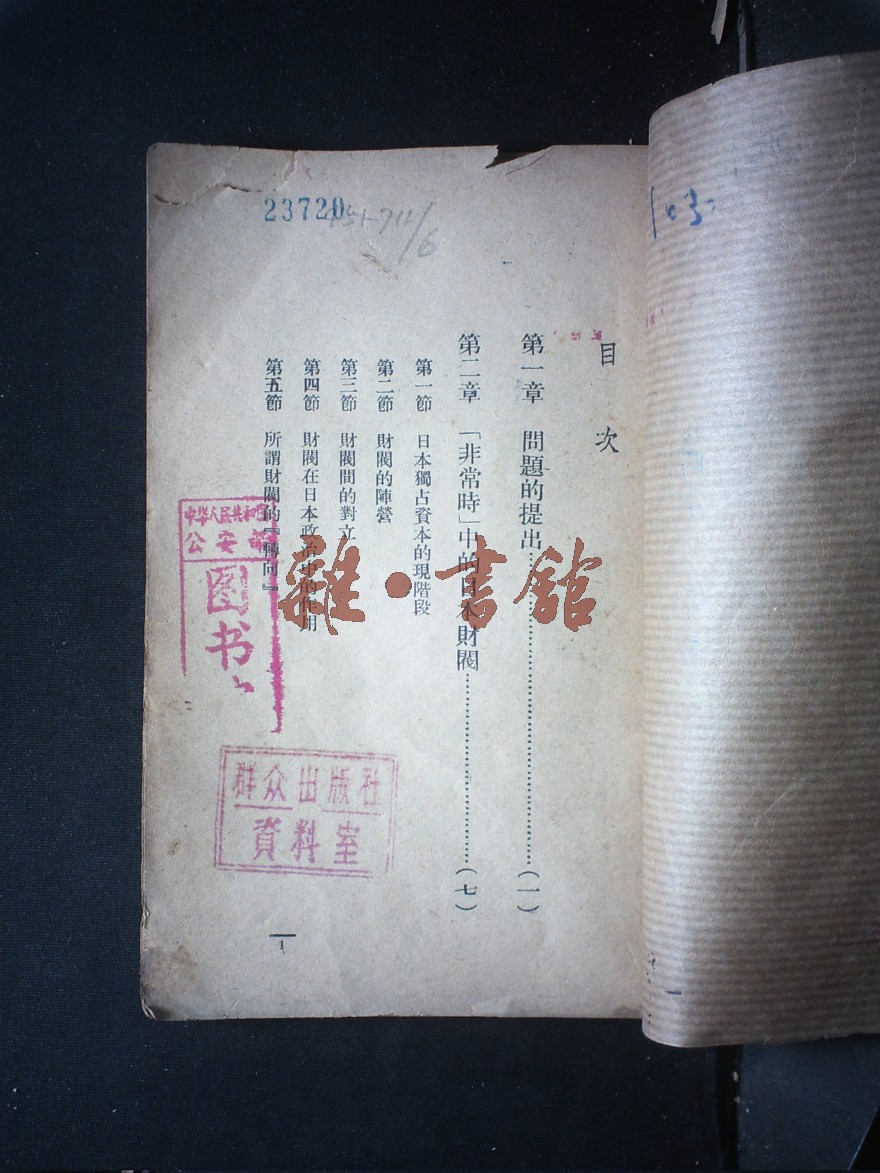 目次
第一章 問題的提出……………………(一)
第二章 「非常時」中的日本財閥……………………(七)
第一節 日本獨占資本的現階段
第二節 財閥的陣營
第三節 財閥間的對立
第四節 財閥在日本政治中的作用
第五節 所謂財閥的『轉向』
1
23720
中华人民共和国
公安部
图书
群众出版社
資料室
雜·書館